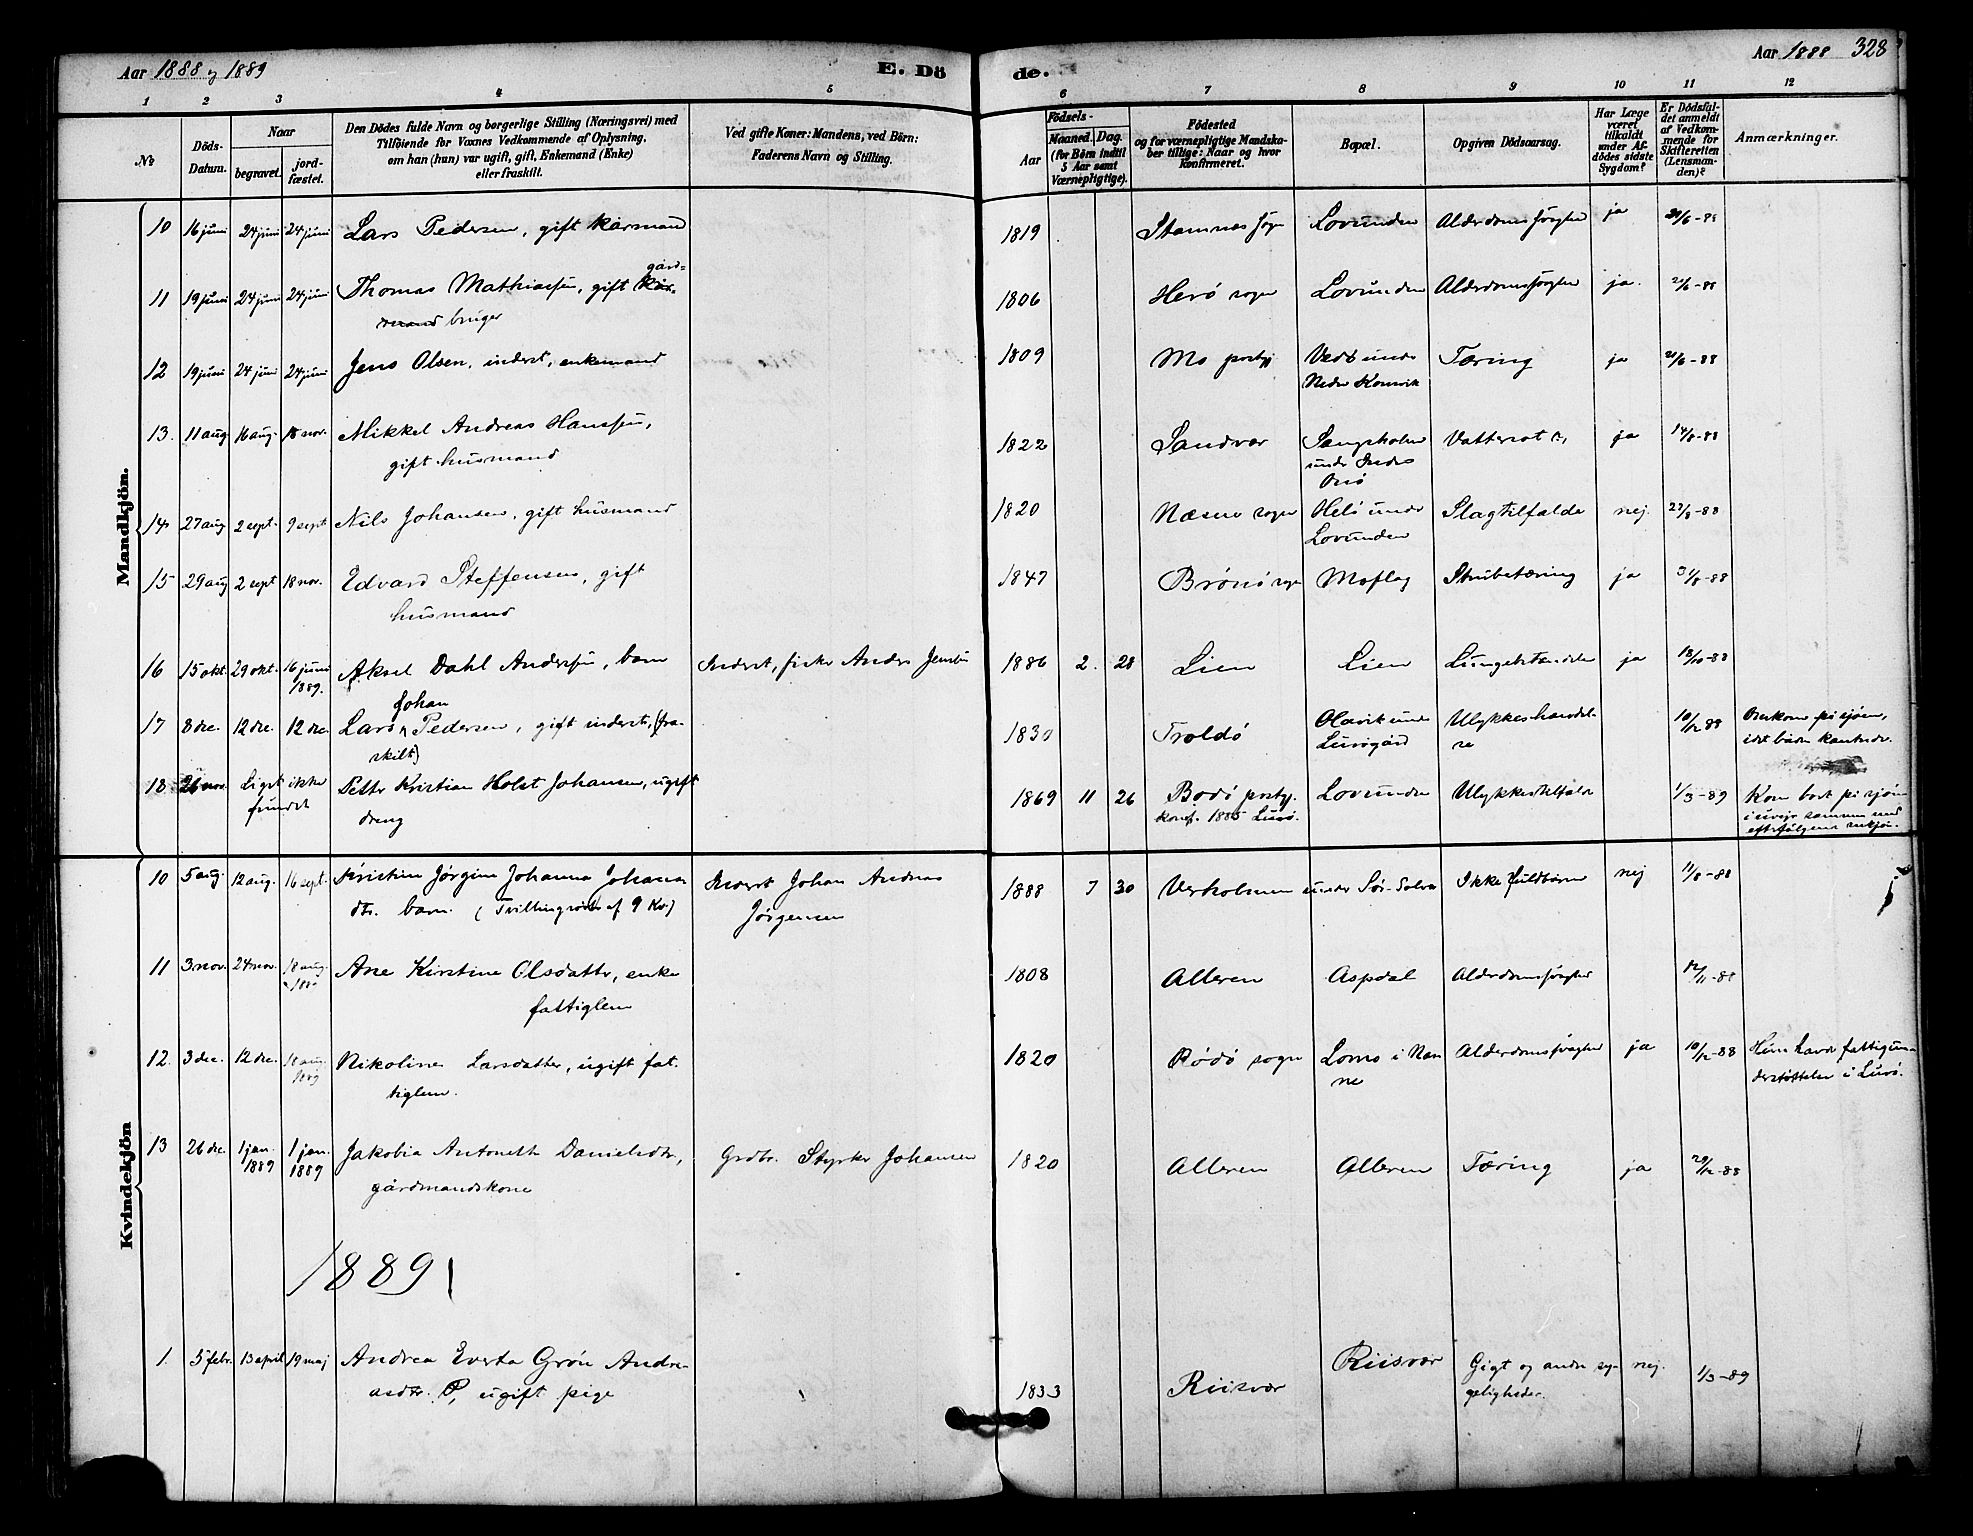 Aar 1888 og 1889
E. Dö
de.
Aar 1888
328
1
2
3
4
5
6
7
8
9
10
11
12
No
Döds-
Datum.
Naar
begravet.
jord-
fæstet.
Den Dödes fulde Navn og borgerlige Stilling (Næringsvei) med
Tilföiende for Voxnes Vedkommende af Oplysning,
om han (hun) var ugift, gift, Enkemand (Enke)
eller fraskilt.
Ved gifte Koner: Mandens, ved Börn:
Faderens Navn og Stilling.
Födsels-
Aar
Maaned.
Dag.
(for Börn indtil
5 Aar samt
Værnepligtige).
Födested
og for værnepligtige Mandska-
ber tillige: Naar og hvor
Konfirmeret.
Bopæl.
Opgiven Dödsaarsag.
Har Læge
været
tilkaldt
under Af-
dödes sidste
Sygdom?
Er Dödsfal-
det anmeldt
af Vedkom-
mende for
Skifteretten
(Lensman-
den)?
Anmærkninger.
Mandkjön.
10 16 juni 24 juni 24 juni Lars Pedersen, gift kårmand 1819 Stamnes sogn Lovunden Alderdomssvaghed ja
11 19 juni 24 juni 24 juni Thomas Mathiassen, gift gård-
bruger 1806 Herö sogn Lovunden Alderdomssvaghed ja.
12 19 juni 24 juni 24 juni Jens Olsen, inderst, enkemand 1809 Mo prestgj Tæring ja 21/6-88
Nedre Konsvik
13. 11 aug 16 aug. 18 nov. Mikkel Andreas Hanssen, 1822 Sandvær Vattersot ja 14/8-88
gift husmand
under Indre
14 27 aug 2 sept. 9 sept Nils Johansen, gift husmand 1820 Næsne sogn Helö under Slagtilfælde nej.
Lovunden
15 29 aug 2 sept 18 nov. Edvard Steffensen, gift 1847 Brönö sogn Moflag Strubetæring ja 31/8-88
husmand
16 15 okt. 29 okt. 16 juni
1889. Aksel Dahl Andersen, barn Inderst, fisker Anders Jensen 1886 2. 28 Lien Lien Lungebetændelse ja 18/10-88
Johan
17 8 dec. 12 dec. 12 dec. Lars Pedersen, gift inderst, (fra-
skilt) 1830 Troldö Olavik under
Lurögård Ulykkeshændel-
se 10/12 88 Omkom på sjöen,
idet båden kantrede.
18 26 nov. Liget ikke
fundet Petter Kristian Holst Johansen, ugift
dreng 1869 11 26 Bodö prestgj.
konf. 1885 Lurö. Lovunden Ulykkestilfælde 1/3-89 Kom bort på sjöen
i uveir sammen med
Kvindekjön
10 5 aug. 12 aug. 16 sept. Kristine Jörgine Johanna Johans
dtr. barn. (Tvillingsöster af 9 Kv.) Inderst Johan Andreas
Jörgensen 1888 7 30 Verholmen under Sör-Solvær Ikke fuldbåren nej 11/8-88
11 3 nov. 24 nov. 18 aug. Ane Kirstine Olsdatter, enke
fattiglem 1808 Alleren Aspdal Alderdomssvaghed 12/11-88
12. 3 dec. 12 dec. 18 aug.
1889 Nikoline Larsdatter, ugift fat-
tiglem. 1820 Rödö sogn Lomo i Næs
ne Alderdomssvaghed ja 10/12-88 Hun havde fattigun-
derstöttelse i Lurö.
13 26 dec. 1 jan.
1889 1 jan.
1889 Jakobia Antonette Danielsdtr,
gårdmandskone Grdbr. Styrker Johansen 1820 Alleren Alleren Tæring ja 29/12-88
1889
1. 5 febr. 13 april 19 maj Andrea Everta Grön Andre-
asdtr. ugift pige 1833 Riisvær Riisvær Gigt og andre sy-
geligheder. nej. 1/3-89